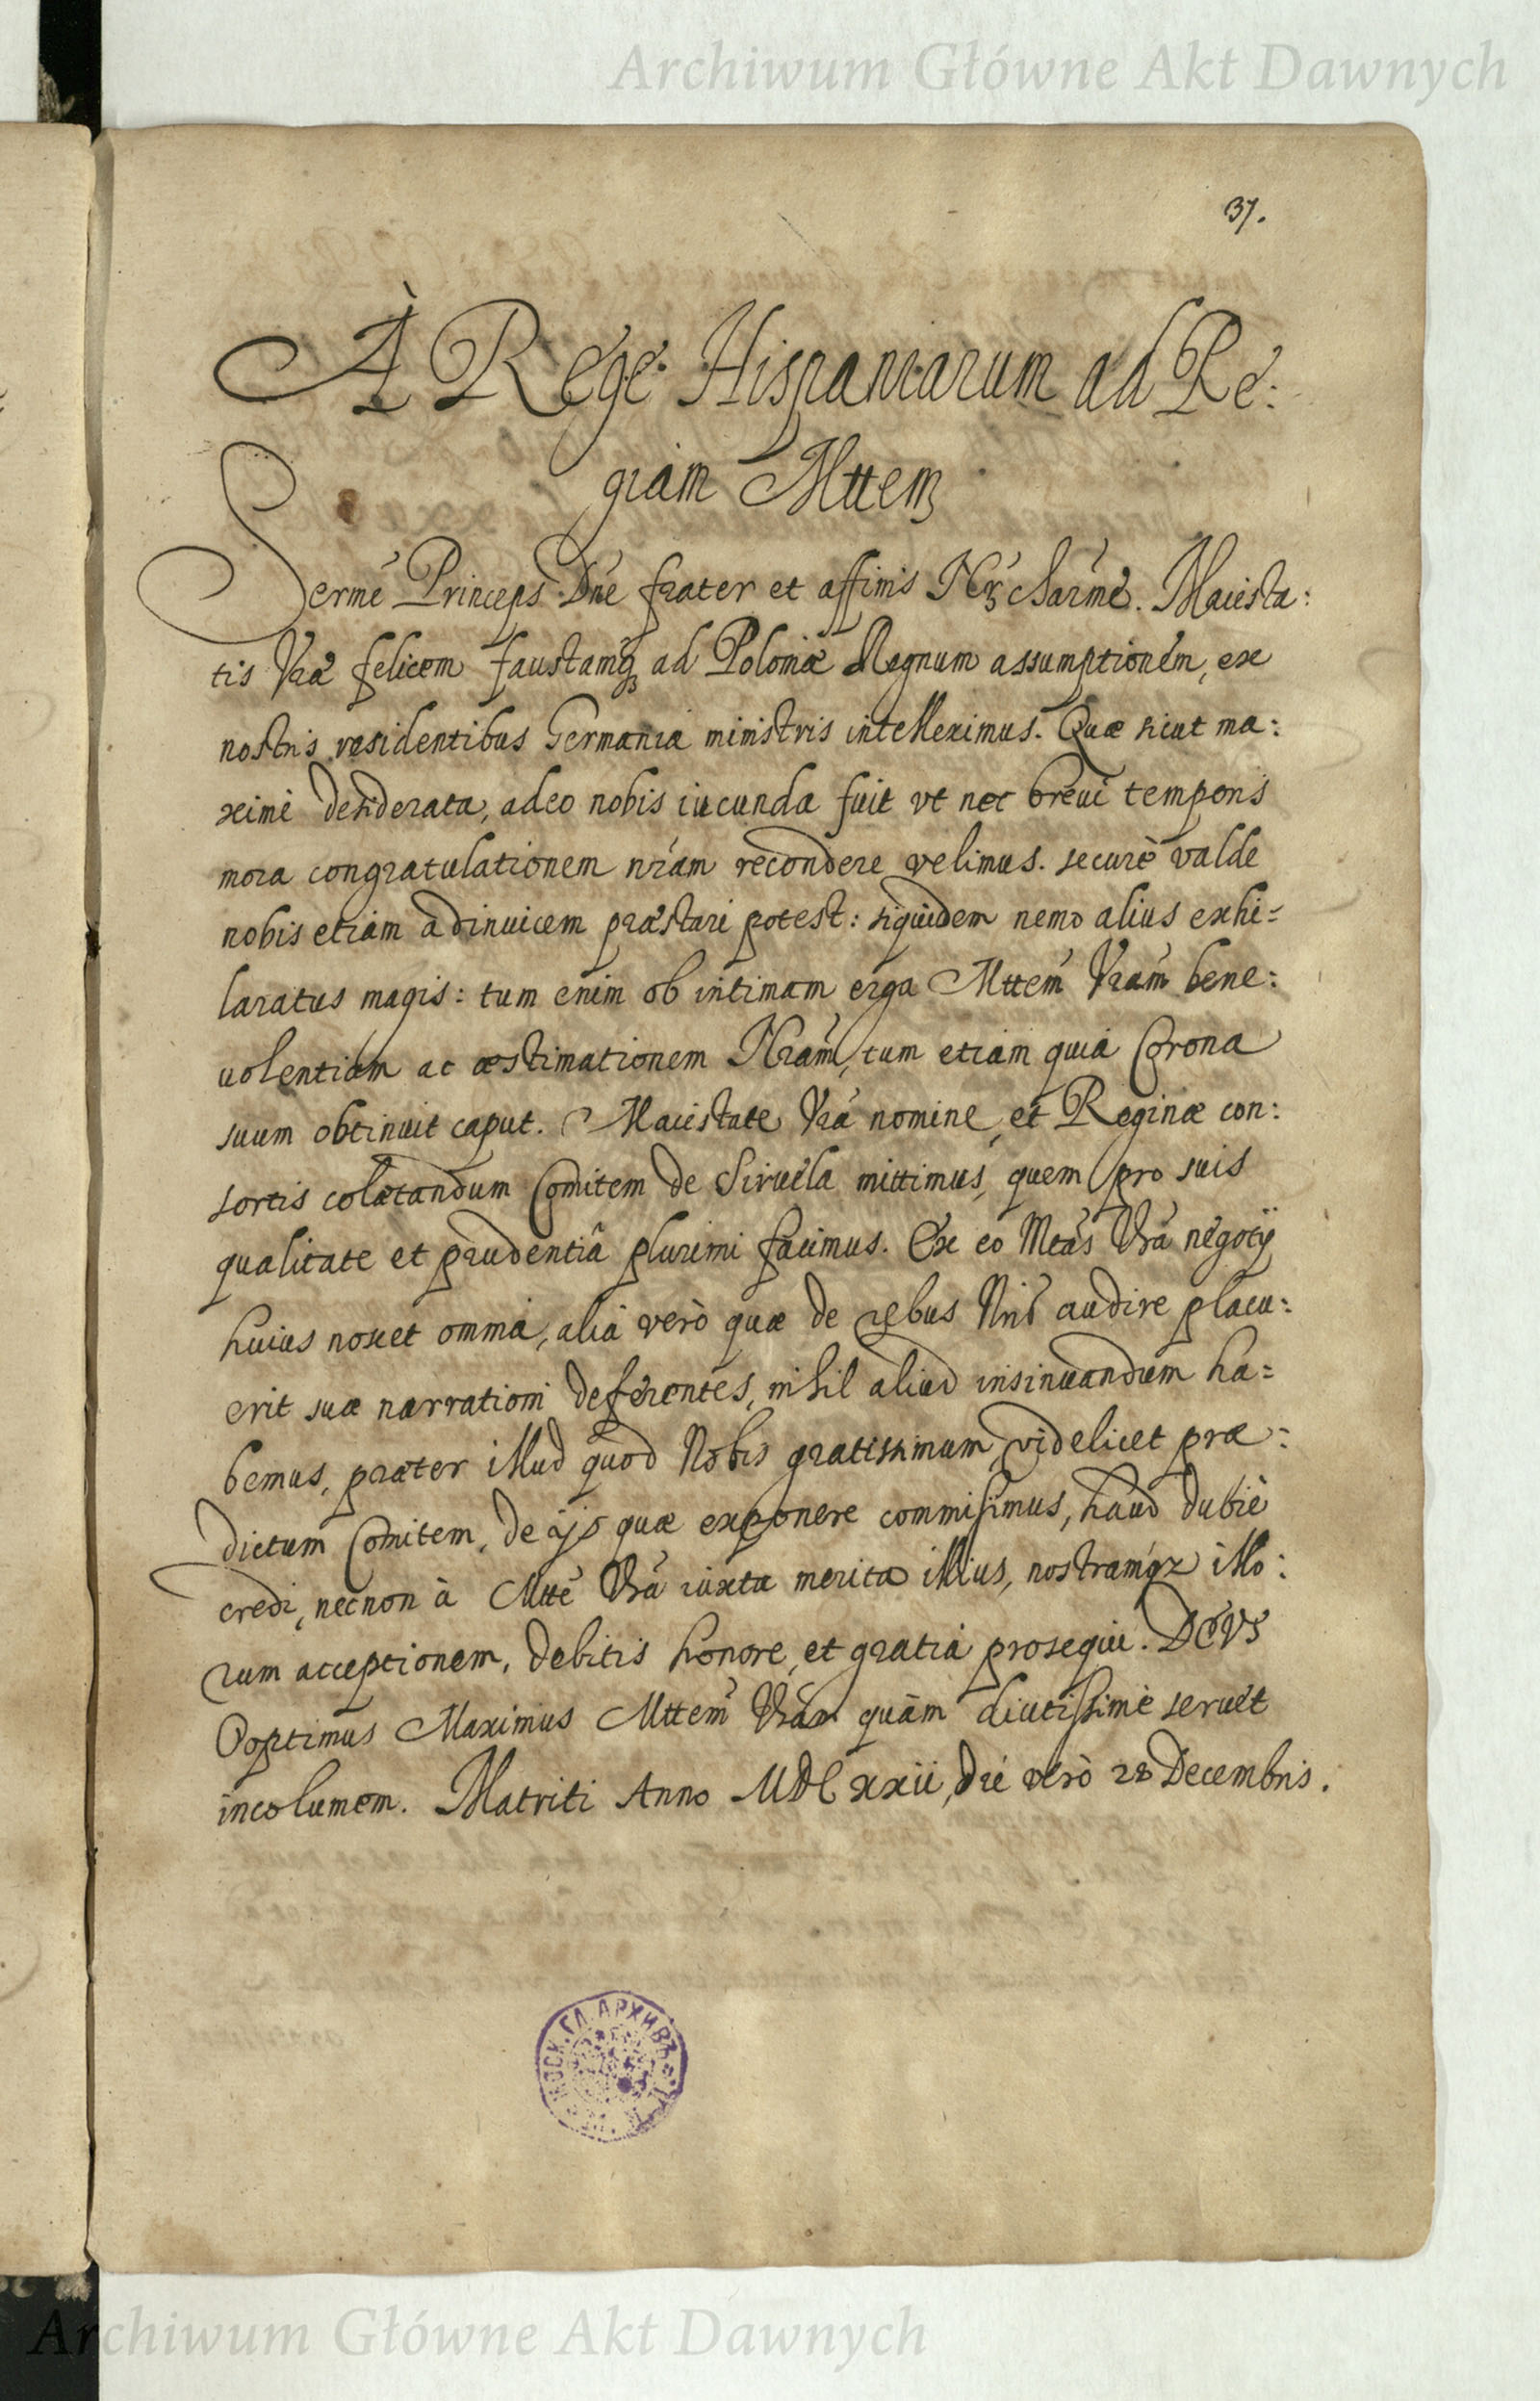 Archiwum Główne Akt Dawnych
37.
À Rege Hispaniarum ad Re:
giam Mttem
Serme Princeps Dne frater et affinis Nr charme. Maiesta:
tis Vrae felicem faustamq; ad Poloniae Regnum assumptionem, ex
nostris residentibus Germania ministris intelleximus. Quae sicut ma:
ximè desiderata, adeo nobis iucunda fuit vt nec breui temporis
mora congratulationem nram recondere velimus. securè valde
nobis etiam adinuicem praestari potest: siquidem nemo alius exhi=
laratus magis: tum enim ob intimam erga Mttem Vram bene:
uolentiam ac aestimationem Nram, tum etiam quia Corona
suum obtinuit caput. Maiestate Vra nomine, et Reginae con:
sortis colaetandum Comitem de Siruela mittimus, quem pro suis
qualitate et prudentiâ plurimi facimus. Ex eo Mtas Vra negotij
huius noscet omnia, alia verò quae de rebus Nris audire placu:
erit suae narrationi deferentes, nihil aliud insinuandum ha=
bemus, praeter illud quod Nobis gratissimum, videlicet prae:
dictum Comitem, de ijs quae exponere commisimus, haud dubiè
credi, necnon à Mtte Vra iuxta merita illius, nostramqz illo:
rum acceptionem, debitis honore, et gratia prosequi. DEVS
Ooptimus Maximus Mttem Vram quàm diutissimè seruet
incolumem. Matriti Anno MDCxxii, die verò 28 Decembris.
МОСК. ГЛ. АРХИВЪ
Archiwum Główne Akt Dawnych